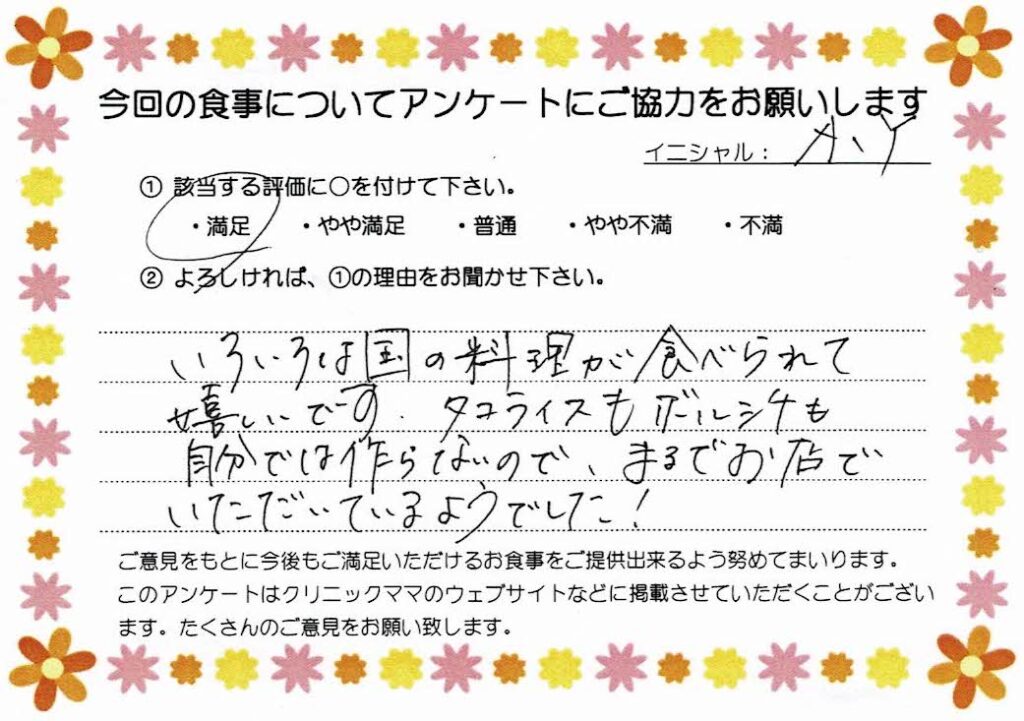 今回の食事についてアンケートにご協力をお願いします
イニシャル：
① 該当する評価に○を付けて下さい。
・満足 ・やや満足 ・普通 ・やや不満 ・不満
② よろしければ、①の理由をお聞かせ下さい。
いろいろな国の料理が食べられて
嬉しいです。タコライスもボルシチも
自分では作らないので、まるでお店で
いただいているようでした！
ご意見をもとに今後もご満足いただけるお食事をご提供出来るよう努めてまいります。
このアンケートはクリニックママのウェブサイトなどに掲載させていただくことがござい
ます。たくさんのご意見をお願い致します。